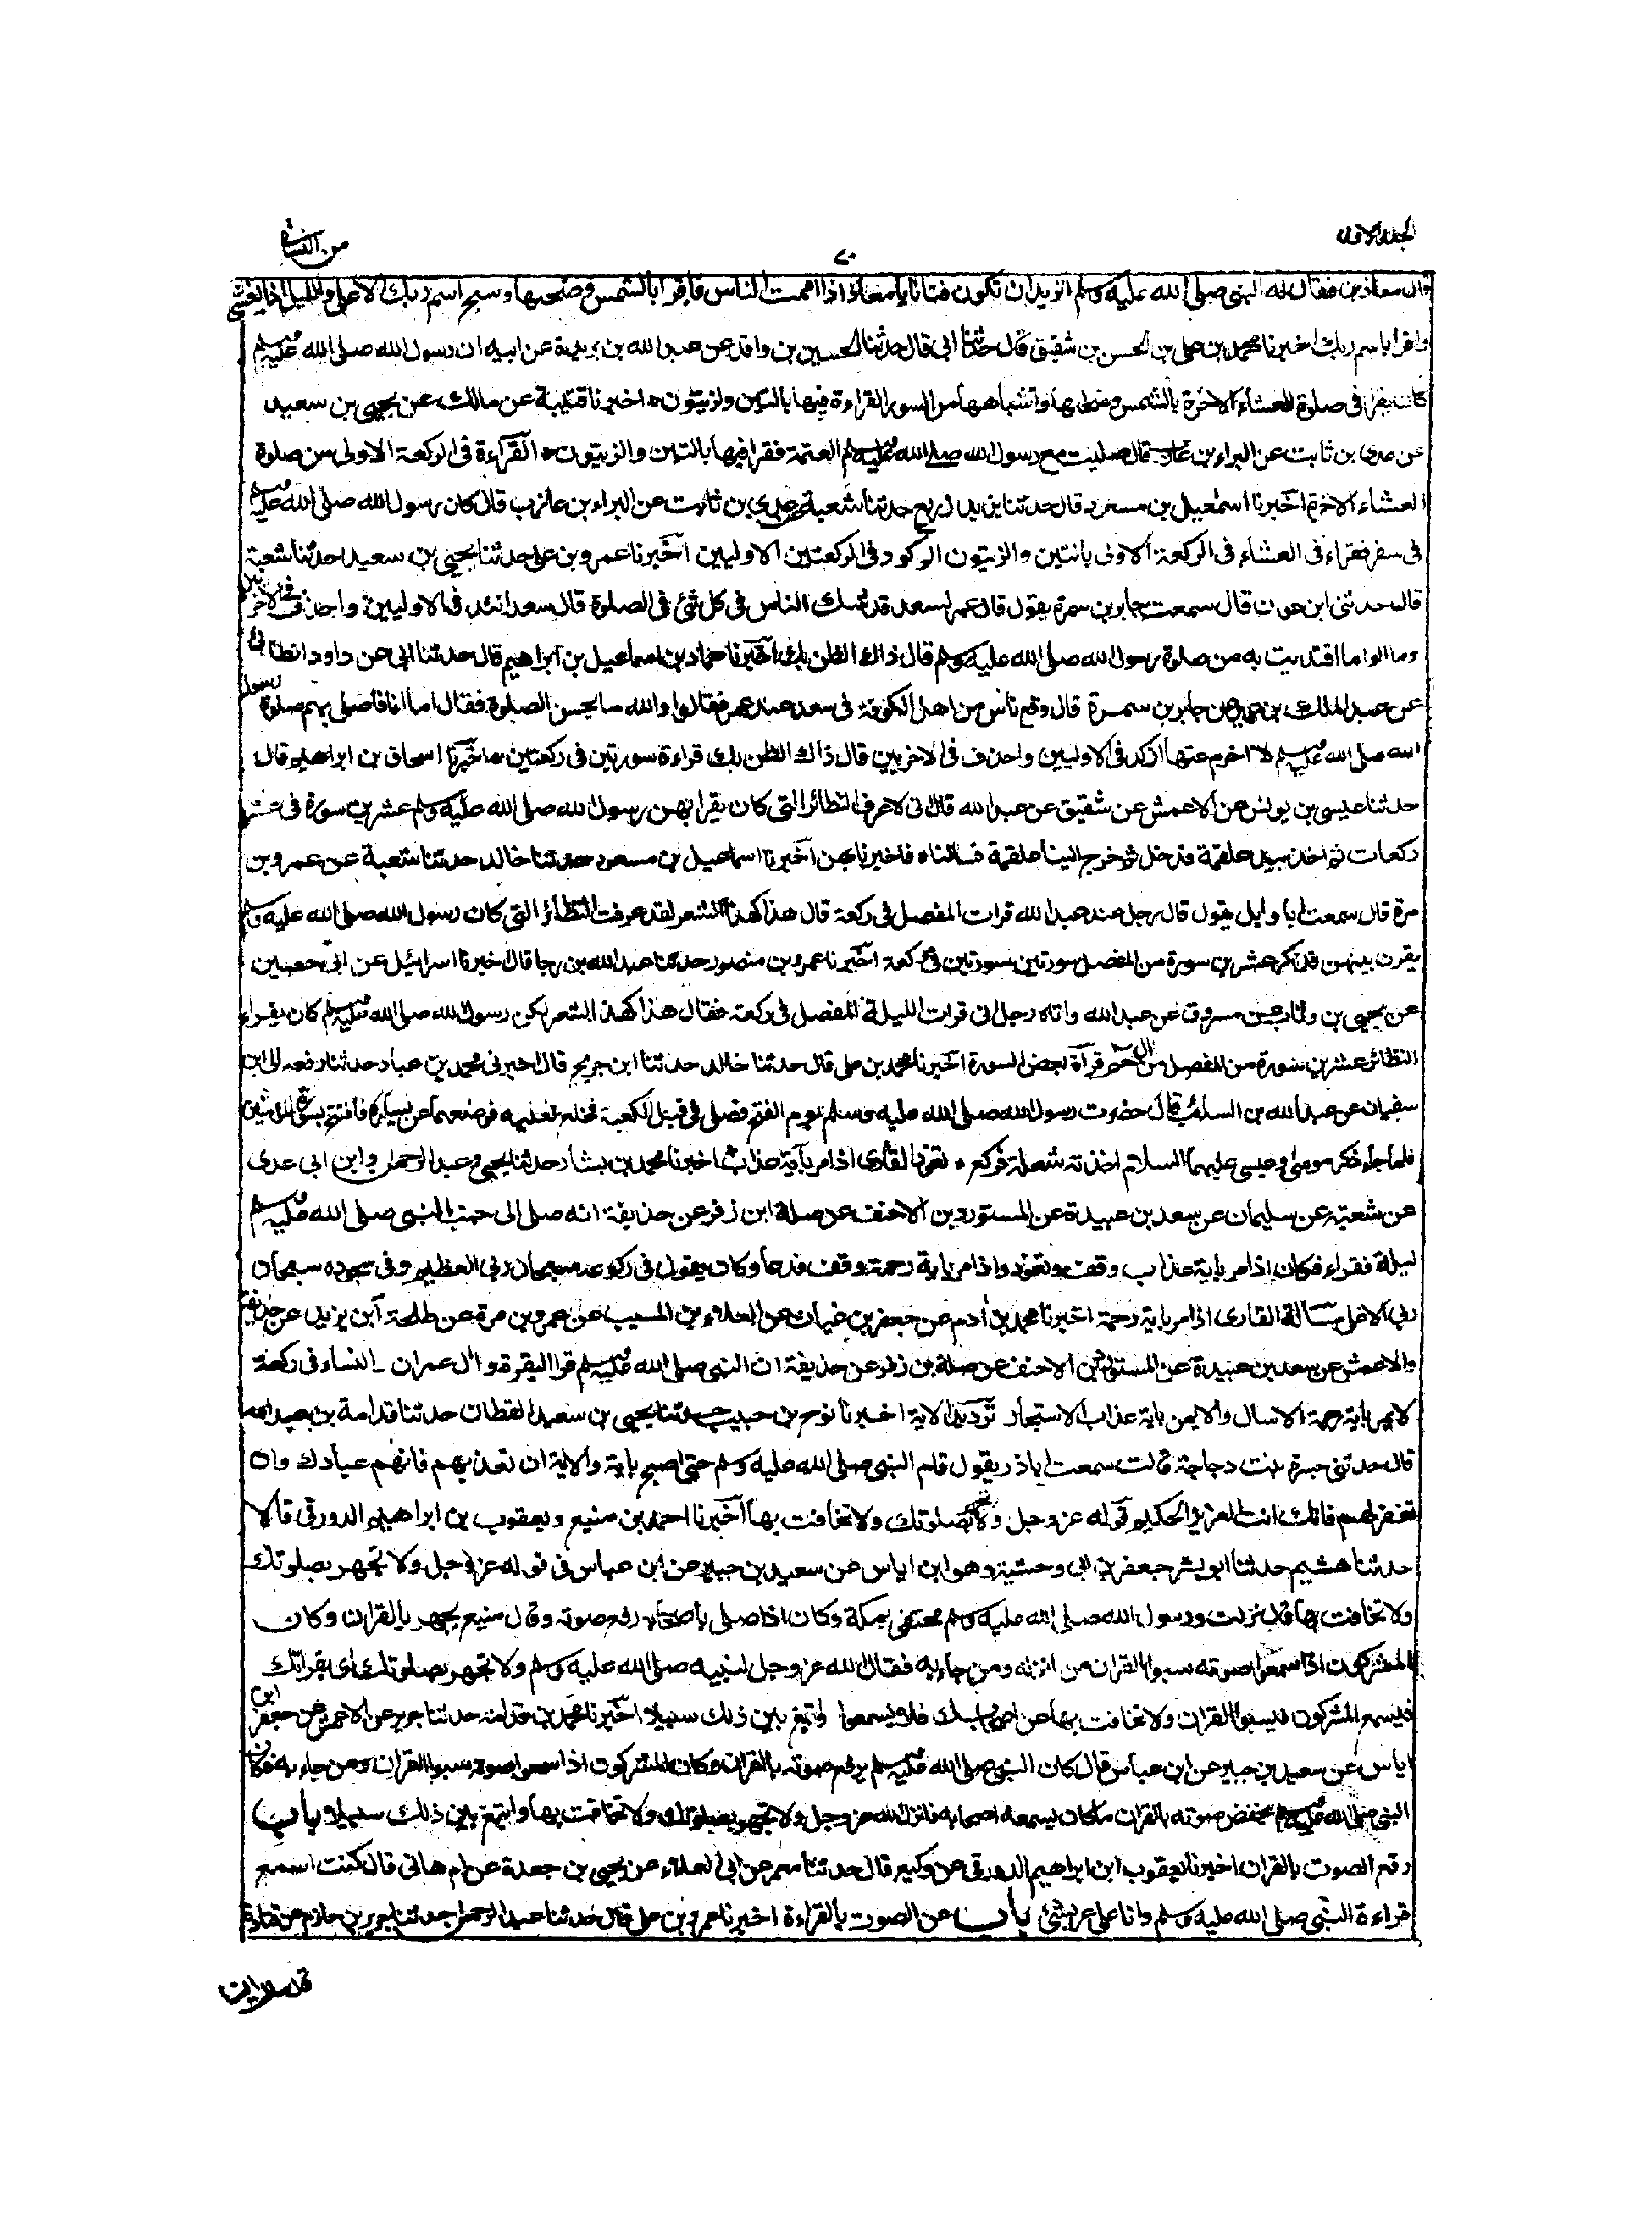 الجلد الاول
٧٠
من النسائي
قال معاذ من فقال له النبي صلى الله عليه وسلم اتريد ان تكون فتانا يا معاذ اذا اممت الناس فاقرا بالشمس وضحها وسبح اسم ربك الاعلى والليل اذا يغشى
واقرا باسم ربك اخبرنا محمد بن على بن الحسن بن شقيق قال حدثنا ابى قال حدثنا الحسين بن واقد عن عبد الله بن بريدة عن ابيه ان رسول الله صلى الله عليه وسلم
كان يقرا فى صلوة العشاء الاخرة بالشمس وضحها واشباهها من السور القراءة فيها بالتين والزيتون اخبرنا قتيبة عن مالك عن يحيى بن سعيد
عن عدى بن ثابت عن البراء بن عازب قال صليت مع رسول الله صلى الله عليه وسلم العتمة فقرا فيها بالتين والزيتون القراءة فى الركعة الاولى من صلوة
العشاء الاخرة اخبرنا اسمعيل بن مسعود قال حدثنا يزيد بن زريع حدثنا شعبة عن عدى بن ثابت عن البراء بن عازب قال كان رسول الله صلى الله عليه وسلم
فى سفر فقراء فى العشاء فى الركعة الاولى بالتين والزيتون الركود فى الركعتين الاوليين اخبرنا عمرو بن على حدثنا يحيى بن سعيد حدثنا شعبة
قال حدثنى ابن عون قال سمعت جابر بن سمرة يقول قال عمر لسعد قد شك الناس فى كل شئ فى الصلوة قال سعد اتئد فى الاوليين واحذف فى الاخريين
وما الوا ما اقتديت به من صلوة رسول الله صلى الله عليه وسلم قال ذاك الظن بك اخبرنا حماد بن اسماعيل بن ابراهيم قال حدثنا ابى عن داود الطائى
عن عبد الملك بن عمير عن جابر بن سمرة قال وقع ناس من اهل الكوفة فى سعد عند عمر فقالوا والله ما يحسن الصلوة فقال اما انا فاصلى بهم صلوة رسول
الله صلى الله عليه وسلم لا اخرم عنها اركد فى الاوليين واحذف فى الاخريين قال ذاك الظن بك قراءة سورتين فى ركعتين اخبرنا اسحاق بن ابراهيم قال
حدثنا عيسى بن يونس عن الاعمش عن شقيق عن عبد الله قال انى لاعرف النظائر التى كان يقرا بهن رسول الله صلى الله عليه وسلم عشرين سورة فى عشر
ركعات ثم اخذ بيد علقمة فدخل ثم خرج الينا علقمة فسالناه فاخبرنا بهن اخبرنا اسماعيل بن مسعود حدثنا خالد حدثنا شعبة عن عمرو بن
مرة قال سمعت ابا وايل يقول قال رجل عند عبد الله قرات المفصل فى ركعة قال هذا كهذ الشعر لقد عرفت النظائر التى كان رسول الله صلى الله عليه وسلم
يقرن بينهن فذكر عشرين سورة من المفصل سورتين سورتين فى ركعة اخبرنا عمرو بن منصور حدثنا عبد الله بن رجا قال اخبرنا اسرائيل عن ابى حصين
عن يحيى بن وثاب عن مسروق عن عبد الله واتاه رجل انى قرات الليلة المفصل فى ركعة فقال هذا كهذ الشعر لكن رسول الله صلى الله عليه وسلم كان يقراء
النظائر عشرين سورة من المفصل من ال حم قراءة بعض السورة اخبرنا محمد بن على قال حدثنا خالد حدثنا ابن جريج قال اخبرنى محمد بن عباد حدثنا رفعه الى ابن
سفيان عن عبد الله بن السائب قال حضرت رسول الله صلى الله عليه وسلم يوم الفتح فصلى فى قبل الكعبة فخلع نعليه فوضعهما عن يساره فافتتح بسورة المؤمنين
فلما جاء ذكر موسى وعيسى عليهما السلام اخذته سعلة فركع تعوذ القارى اذا مر بآية عذاب اخبرنا محمد بن بشار حدثنا يحيى وعبد الرحمن وابن ابى عدى
عن شعبة عن سليمان عن سعد بن عبيدة عن المستورد بن الاحنف عن صلة ابن زفر عن حذيفة انه صلى الى جنب النبى صلى الله عليه وسلم
ليلة فقراء فكان اذا مر باية عذاب وقف وتعوذ واذا مر باية رحمة وقف فدعا وكان يقول فى ركوعه سبحان ربى العظيم وفى سجوده سبحان
ربى الاعلى مسالة القارى اذا مر باية رحمة اخبرنا محمد بن ادم عن حفص بن غياث عن العلاء بن المسيب عن عمرو بن مرة عن طلحة ابن يزيد عن حذيفة
والاعمش عن سعد بن عبيدة عن المستورد بن الاحنف عن صلة بن زفر عن حذيفة ان النبى صلى الله عليه وسلم قرا البقرة وال عمران والنساء فى ركعة
لا يمر باية رحمة الا سال ولا بمن باية عذاب الا استجار ترديد الاية اخبرنا نوح بن حبيب حدثنا يحيى بن سعيد القطان حدثنا قدامة بن عبد الله
قال حدثتنى جسرة بنت دجاجة قالت سمعت ابا ذر يقول قام النبى صلى الله عليه وسلم حتى اصبح باية والاية ان تعذبهم فانهم عبادك وان
تغفر لهم فانك انت العزيز الحكيم قوله عز وجل ولا تجهر بصلوتك ولا تخافت بها اخبرنا احمد بن منيع ويعقوب بن ابراهيم الدورقى قالا
حدثنا هشيم حدثنا ابو بشر جعفر بن ابى وحشية وهو ابن اياس عن سعيد بن جبير عن ابن عباس فى قوله عز وجل ولا تجهر بصلوتك
ولا تخافت بها قال نزلت ورسول الله صلى الله عليه وسلم مختفى بمكة وكان اذا صلى باصحابه رفع صوته وقال منيع يجهر بالقران وكان
المشركون اذا سمعوا صوته سبوا القران من انزله ومن جاء به فقال الله عز وجل لنبيه صلى الله عليه وسلم ولا تجهر بصلوتك اى بقراتك
فيسمع المشركون فيسبوا القران ولا تخافت بها عن اصحابك فلا يسمعوا وابتغ بين ذلك سبيلا اخبرنا محمد بن قدامة حدثنا جرير عن الاعمش عن جعفر ابن
اياس عن سعيد بن جبير عن ابن عباس قال كان النبى صلى الله عليه وسلم يرفع صوته بالقران وكان المشركون اذا سمعوا صوته سبوا القران ومن جاء به فكان
النبى صلى الله عليه وسلم يخفض صوته بالقران ما كان يسمعه اصحابه فانزل الله عز وجل ولا تجهر بصلوتك ولا تخافت بها وابتغ بين ذلك سبيلا باب
رفع الصوت بالقران اخبرنا يعقوب ابن ابراهيم الدورقى عن وكيع قال حدثنا مسعر عن ابى العلاء عن يحيى بن جعدة عن ام هانى قال كنت اسمع
قراءة النبى صلى الله عليه وسلم وانا على عريشى باب عن الصوت بالقراءة اخبرنا عمرو بن على قال حدثنا عبد الرحمن حدثنا جرير بن حازم عن قتادة
قال سالت